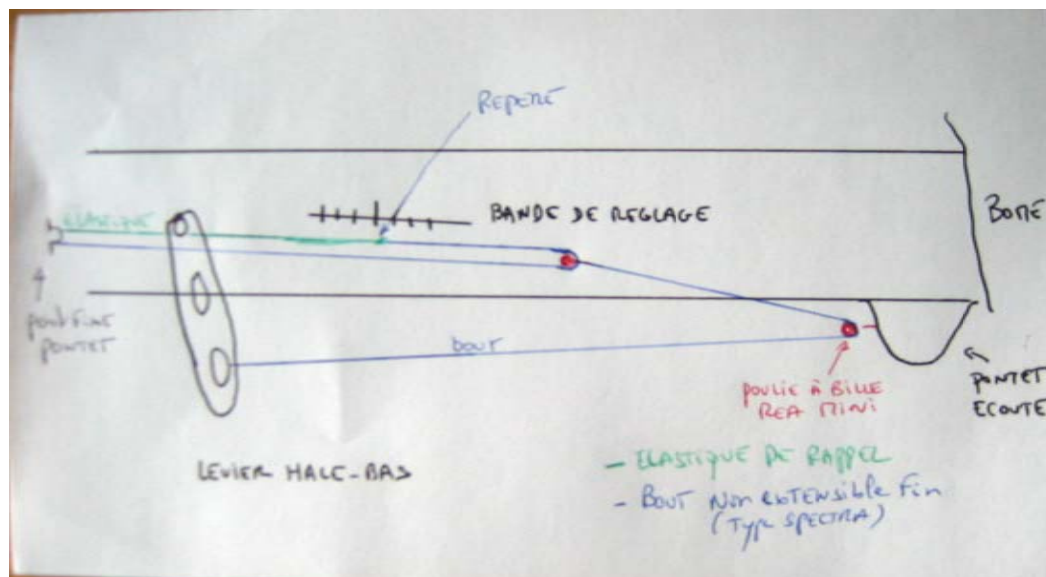 REPERE
ELASTIQUE
BANDE DE REGLAGE
BOME
point FIXE
PONTET
bout
POULIE À BILLE
REA MINI
PONTET
ECOUTE
LEVIER HALE-BAS
- ELASTIQUE DE RAPPEL
- BOUT NON EXTENSIBLE Fin
(TYPE SPECTRA)